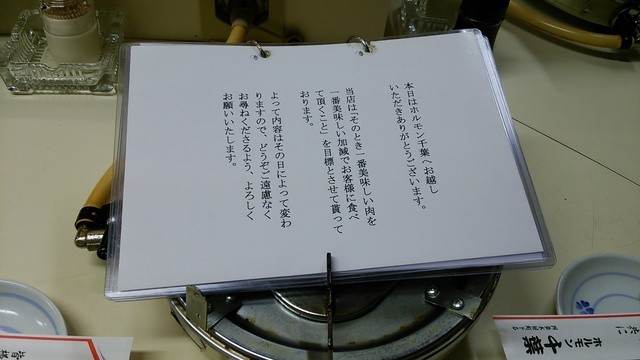 本日はホルモン千葉へお越し
いただきありがとうございます。
当店は「そのとき一番美味しい肉を
一番美味しい加減でお客様に食べ
て頂くこと」を目標とさせて貰って
おります。
よって内容はその日によって変わ
りますので、どうぞご遠慮なく
お尋ねくださるよう、よろしく
お願いいたします。
ホルモン千葉